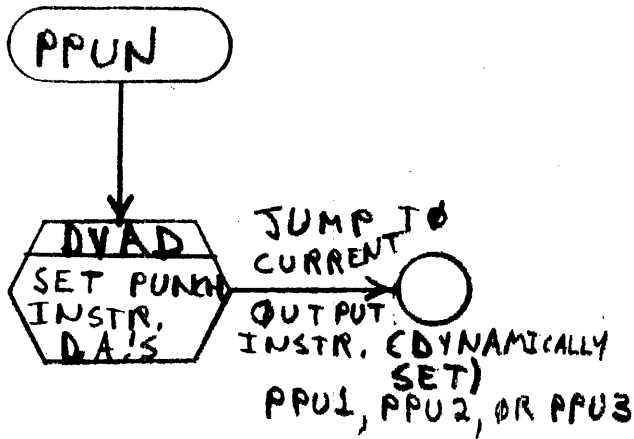 PPUN
DVAD
SET PUNCH
INSTR.
D.A.'S
JUMP TØ
CURRENT
ØUTPUT
INSTR. (DYNAMICALLY
SET)
PPU1, PPU2, ØR PPU3